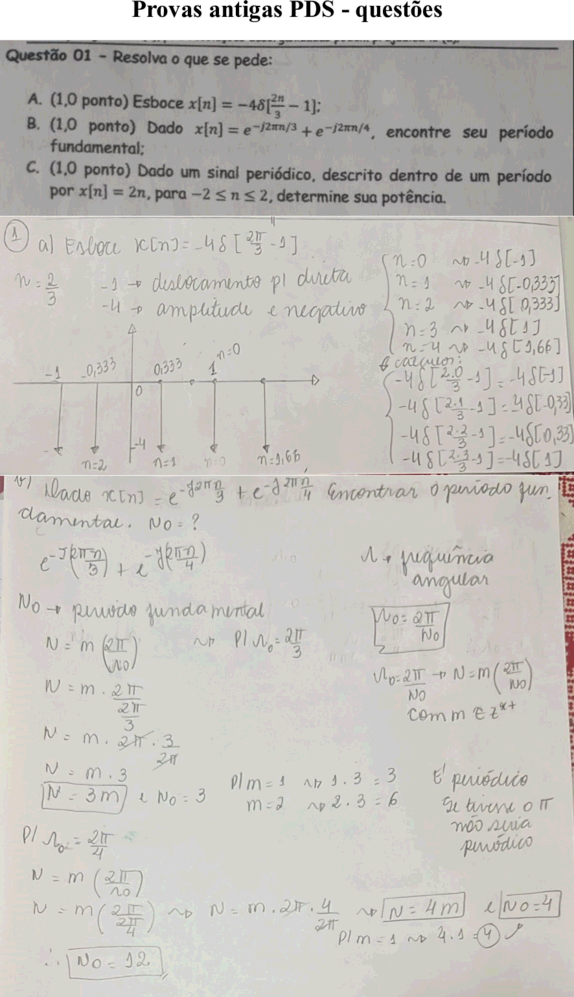 Provas antigas PDS - questões
Questão 01 - Resolva o que se pede:
A. (1,0 ponto) Esboce x[n] = −4δ[2n/3 − 1];
B. (1,0 ponto) Dado x[n] = e^{−j2πn/3} + e^{−j2πn/4}, encontre seu período
fundamental;
C. (1,0 ponto) Dado um sinal periódico, descrito dentro de um período
por x[n] = 2n, para −2 ≤ n ≤ 2, determine sua potência.
1 a) Esboce x[n] = -4δ[2π/3 - 1]
n = 2/3 -1 → deslocamento p/ direita
-4 → amplitude e negativo
n=0 ~> -4δ[-1]
n=1 ~> -4δ[-0,333]
n=2 ~> -4δ[0,333]
n=3 ~> -4δ[1]
n=4 ~> -4δ[1,66]
calculos:
-4δ[2.0/3 -1] = -4δ[-1]
-4δ[2.1/3 -1] = -4δ[-0,33]
-4δ[2.2/3 -1] = -4δ[0,33]
-4δ[2.3/3 -1] = -4δ[1]
n=0
-1 -0,333 0,333 1
0
-4
n=2 n=1 n=0 n=1,66
Dado x[n] = e^{-j2πn/3} + e^{-j2πn/4} Encontrar o período fun.
damental. No = ?
e^{-J(2πn/3)} + e^{-j(2πn/4)}
Ω → frequência
angular
No → período fundamental
Ωo = 2π/No
N = m(2π/Ωo) ~> P/ Ωo = 2π/3
Ωo = 2π/No → N = m(2π/No)
com m ∈ Z*+
N = m . 2π/(2π/3)
N = m . 2π . 3/2π
N = m . 3
N = 3m e No = 3
P/ m = 1 ~> 1.3 = 3
m = 2 ~> 2.3 = 6
E' periódico
Se tivesse o π
não seria
periódico
P/ Ωo = 2π/4
N = m(2π/Ωo)
N = m(2π/(2π/4)) ~> N = m . 2π . 4/2π ~> N = 4m e No = 4
P/ m = 1 ~> 4.1 = 4
∴ No = 12